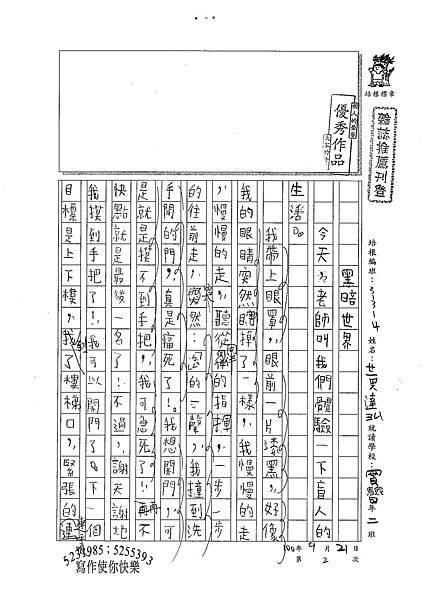 培根標章
雜誌推薦刊登
個人的榮譽
優秀作品
大家的書
培根編班：31314 姓名： 就讀學校： 年二班
100年9月21日 第2次
黑暗世界
今天，老師叫我們體驗一下盲人的
生活。
我帶上眼罩，眼前一片漆黑，好像
我的眼睛突然瞎掉了一樣，我慢慢的走
，慢慢的走，聽從同伴的指揮，一步一步
的往前走，突然：「咚」的一聲，我撞到洗
手間的門，真是痛死了！我想開門，可
是就是摸不到手把，我可急死了！再不
快點就是最後一名了！不過，謝天謝地
我摸到手把了！我可以開門了。下一個
目標是上下樓，我到了樓梯口，緊張的
5234985；5255393
寫作使你快樂